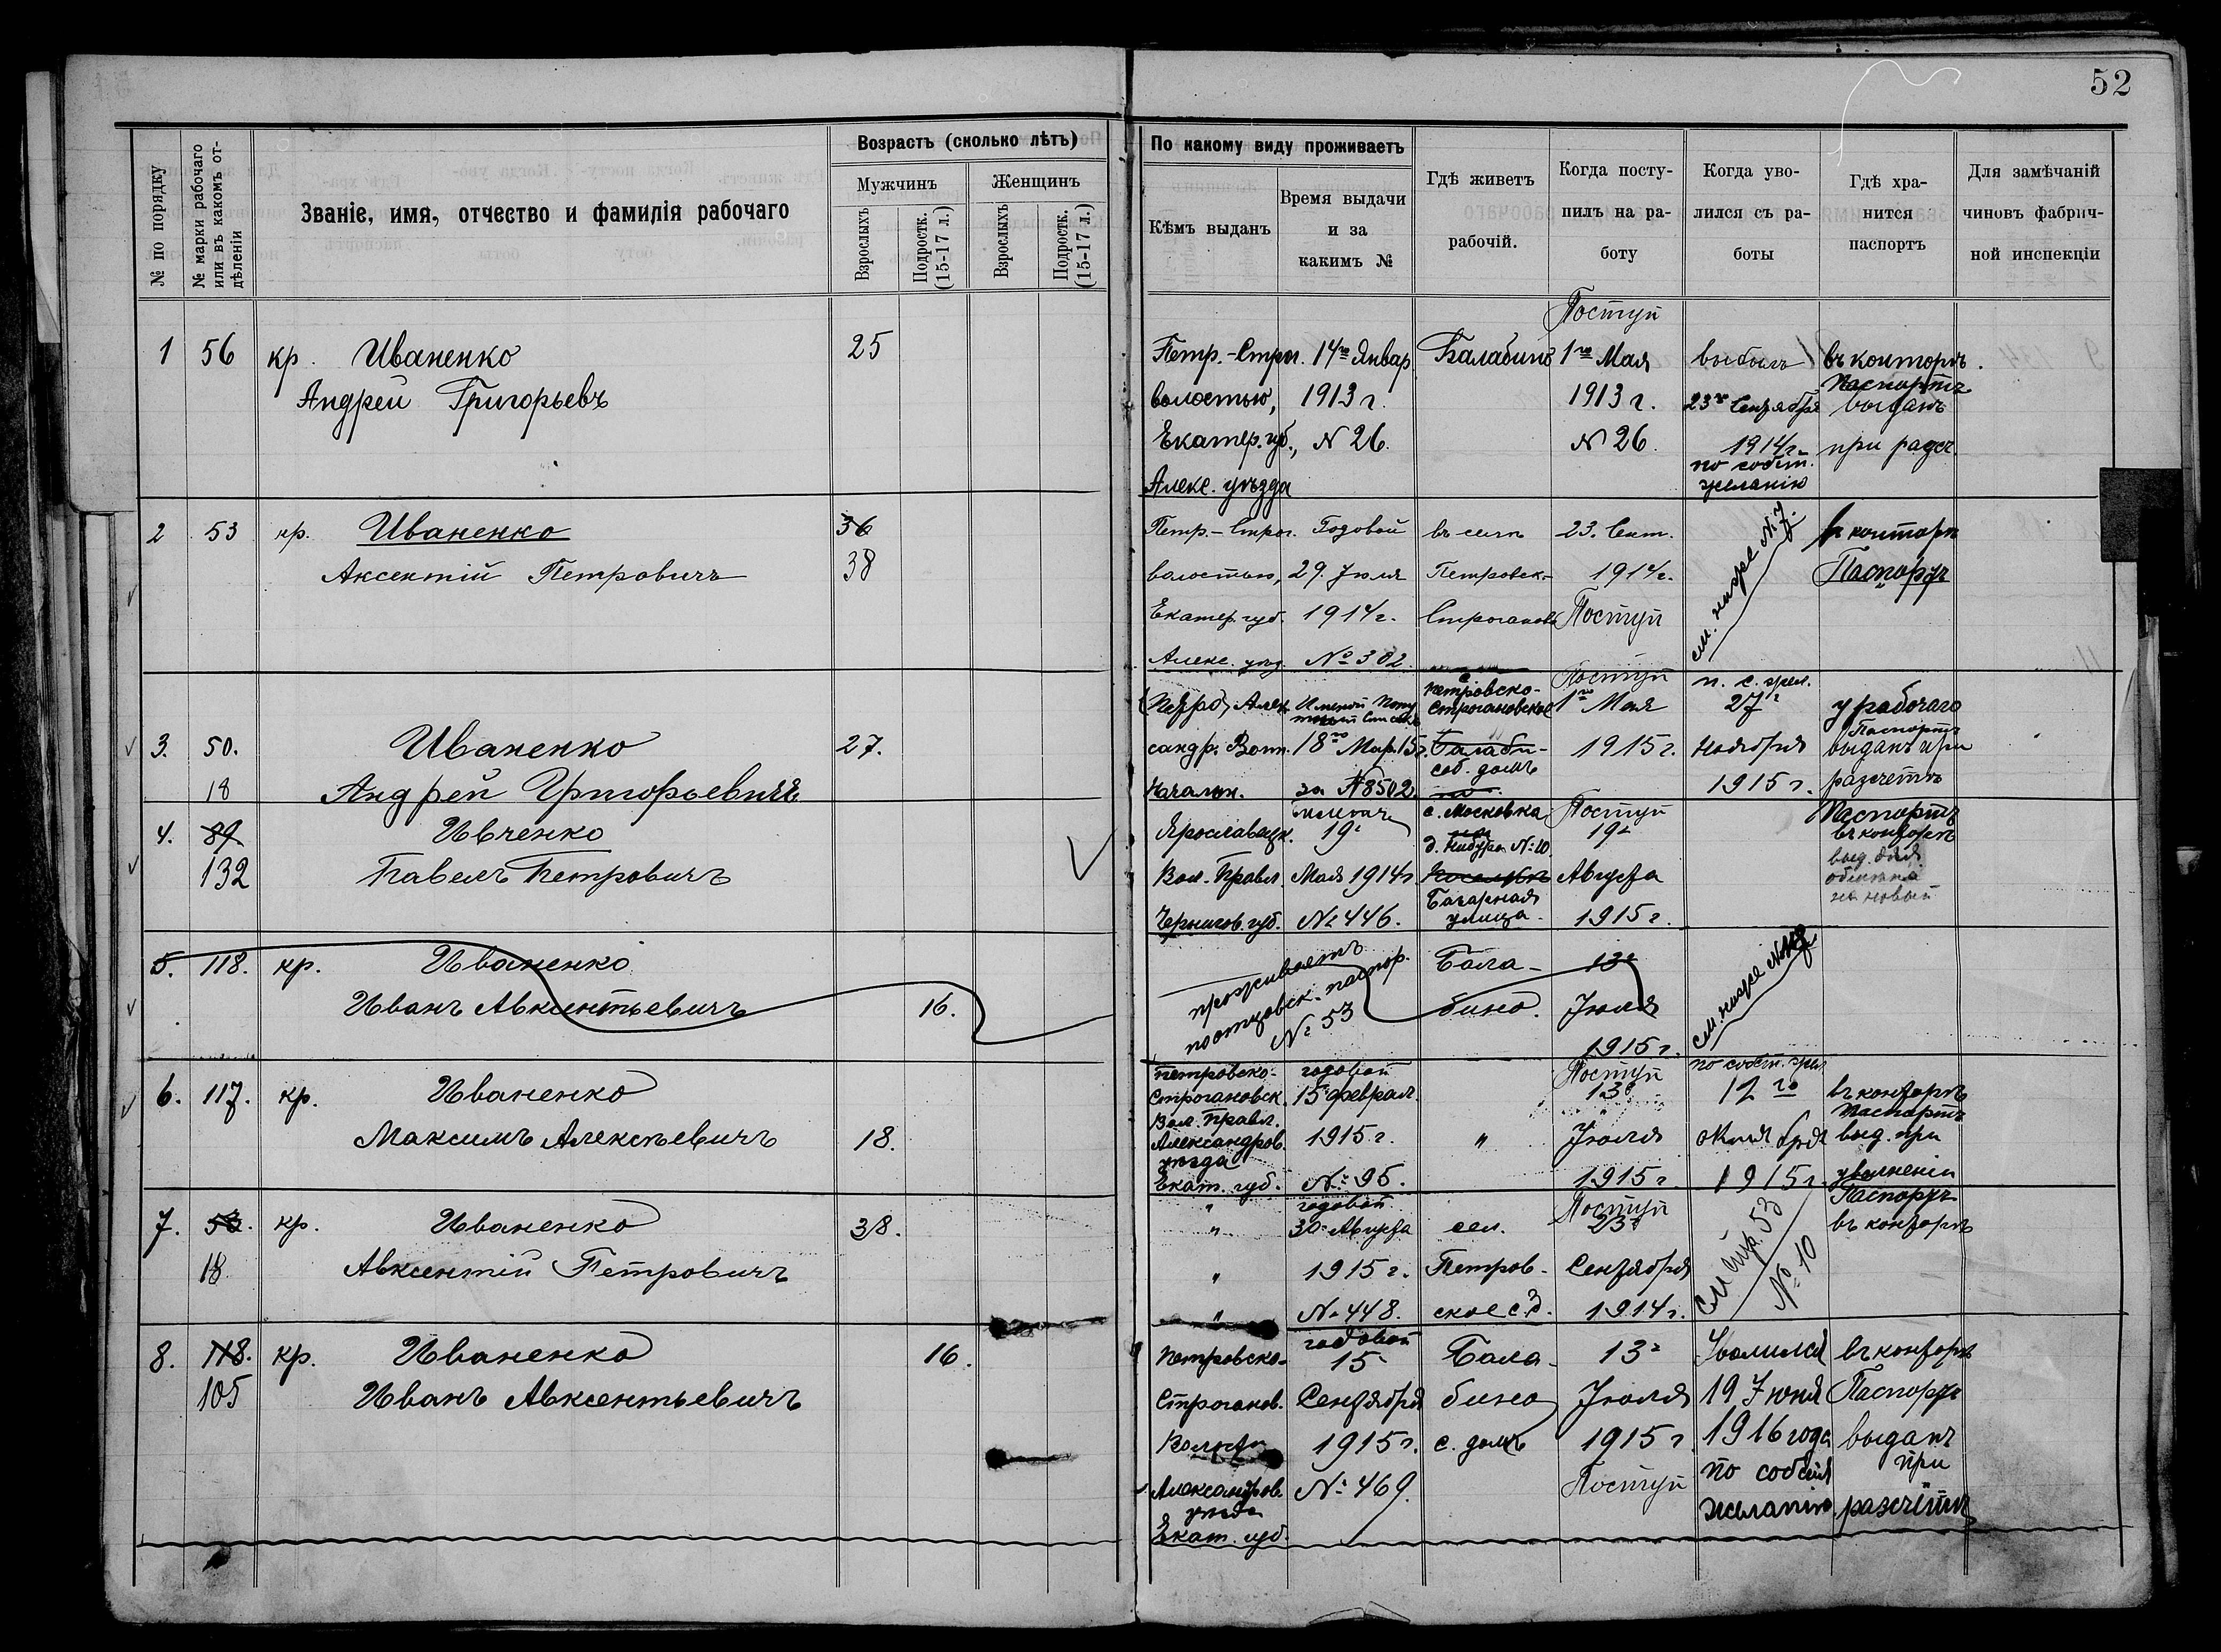 52
№ по порядку
№ марки рабочаго или въ какомъ от-дѣленіи
Званіе, имя, отчество и фамилія рабочаго
Возрастъ (сколько лѣтъ)
Мужчинъ
Женщинъ
Взрослыхъ
Подростк. (15-17 л.)
Взрослыхъ
Подростк. (15-17 л.)
По какому виду проживаетъ
Кѣмъ выданъ
Время выдачи
и за
какимъ №
Гдѣ живетъ
рабочій.
Когда посту-
пилъ на ра-
боту
Когда уво-
лился съ ра-
боты
Гдѣ хра-
нится
паспортъ
Для замѣчаній
чиновъ фабрич-
ной инспекціи
1 56 кр. Иваненко 25
Андрей Григорьевъ
Петр.-Строг.
волостью,
Екатер. губ.,
Алекс. уѣзда
14го Январ
1913 г.
N 26.
Балабино
Поступ
1го Мая
1913 г.
N 26.
выбылъ
23го Сентября
1914 г.
по собст.
желанію
въ конторѣ.
Паспортъ
выданъ
при расч.
2 53 кр. Иваненко 36
Аксентій Петровичъ 38
Петр.-Строг.
волостью,
Екатер. губ.
Алекс. уѣзд.
Годовой
29. Іюля
1914 г.
№ 302.
въ селѣ
Петровск.-
Строганов
23. Сент.
1914 г.
Поступ
см. ниже N 7.
въ конторѣ
Паспортъ
3. 50. Иваненко 27.
18 Андрей Григорьевичъ
Алек
сандр. Воин.
Начальн.
18го Мар. 15 г.
за N 8502
с
Петровско-
Строгановское
Балаби-
соб. домъ
но.
Поступ
1го Мая
1915 г.
п. с. жел.
27г
Ноября
1915 г.
у рабочаго
Паспортъ
выданъ при
разсчетѣ
4. 89 Ивченко
132 Павелъ Петровичъ
Вол. Правл.
Чернигов. губ.
19г
Мая 1914 г
№ 446.
с. Московка
№ 10.
Базарная
улица.
Поступ
19г
Августа
1915 г.
Паспортъ
въ конторѣ
выд. для
обмѣна
на новый
5. 118. кр. Иваненко
Иванъ Авксентьевичъ 16.
проживаетъ
по отцовск. паспор.
№ 53
Бала-
бино.
13г
Іюля
1915 г.
см. ниже №8
6. 117. кр. Иваненко
Максимъ Алексѣевичъ 18.
Петровско-
Строгановск.
Вол. Правл.
Александров.
уѣзда
Екат. губ.
годовой
15 феврал.
1915 г.
№ 95.
"
Поступ
13г
Іюля
1915 г
по собст. жел
12го
Октября
1915 г.
въ конторѣ
Паспортъ
выд. при
увольненіи
7. 53. кр. Иваненко 38.
18 Авксентій Петровичъ
"
"
"
"
годовой
30 Августа
1915 г.
№ 448.
сел.
Петров-
ское с. д.
Поступ
23г
Сентября
1914 г.
См стр. 53
№ 10
Паспортъ
въ конторѣ
8. 118. кр. Иваненко 16.
105 Иванъ Авксентьевичъ
Петровско-
Строганов.
Волости
Александров.
уѣзда
Екат. губ.
годовой
15
Сентября
1915 г.
№ 469.
Бала-
бино
с. домъ
13г
Іюля
1915 г
Поступ
Уволился
19 Іюня
1916 года
по собств
желанію
въ конторѣ
Паспортъ
выданъ
при
разсчетѣ